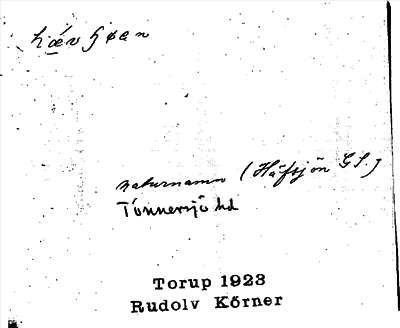 hævʃøan
naturnamn (Häfsjön G.S.)
Tönnersjö hd
Torup 1923
Rudolv Körner